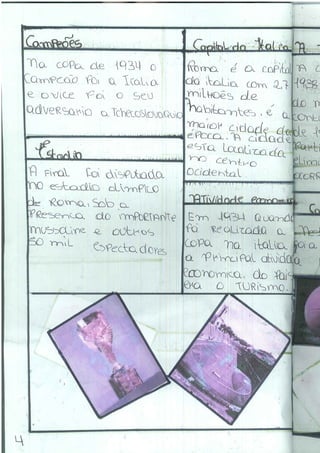 Campeões
Na copa de 1934 o
Campeão foi a Italia
e o vice foi o seu
adversario a Tchecoslovaquia
Estadio
A Final foi disputada
no estadio olimpico
de Roma. Sob a
Presença do importante
mussoline e outros
50 mil espectadores
Capital da Italia
Roma é a capital
da italia com 2,7
milhões de
habitantes. é a
maior cidade de
época. A cidade
esta localizada
no centro
ocidental
Atividade
Em 1934 quando
foi realizada a
copa na italia
a Principal atividade
economica do País
era o turismo.
A
1938
4